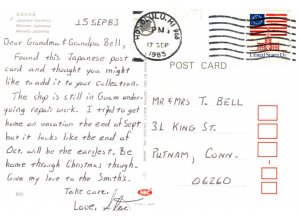 15 SEP 83
Dear Grandma & Grandpa Bell,
Found this Japanese post
card and thought you might
like to add it to your collection.
The ship is still in Guam under-
going repair work. I tried to get
home on vacation the end of Sept.
but it looks like the end of
Oct. will be the earliest. Be
home through Christmas though.
Give my love to the Smith's.
Take care.
Love, Steve
HONOLULU, HI
PM
17 SEP
1983
POST CARD
MR & MRS T. BELL
31 KING ST.
PUTNAM, CONN.
06260